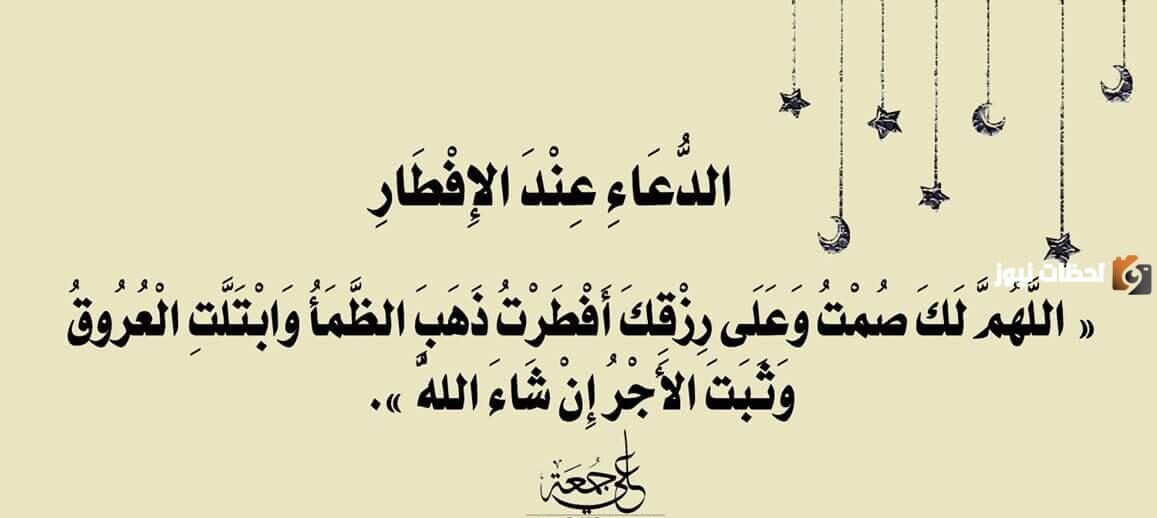 الدُّعَاءِ عِنْدَ الإِفْطَارِ
لحظات نيوز
« اللَّهُمَّ لَكَ صُمْتُ وَعَلَى رِزْقِكَ أَفْطَرْتُ ذَهَبَ الظَّمَأُ وَابْتَلَّتِ الْعُرُوقُ
وَثَبَتَ الأَجْرُ إِنْ شَاءَ اللهُ ».
علي جمعة